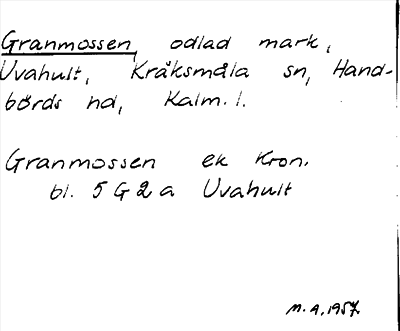 Granmossen, odlad mark,
Uvahult, Kråksmåla sn, Hand-
börds hd, Kalm. l.
Granmossen ek Kron.
bl. 5 G 2 a Uvahult
M. A. 1957.